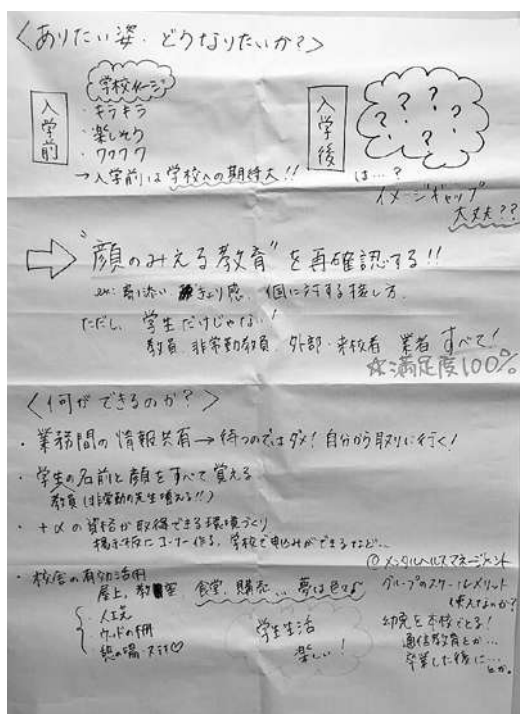 〈ありたい姿・どうなりたいか?〉
入学前
学校イメージ
・キラキラ
・楽しそう
・ワクワク
→入学前は学校への期待大!!
入学後
? ? ? ? ? ?
は…?
イメージギャップ
大丈夫??
⇒ "顔のみえる教育"を再確認する!!
ex: 寄り添い きょり感、個に対する接し方
ただし、学生だけじゃない!
教員、非常勤教員、外部・来校者 業者 すべて!
☆満足度100%
〈何ができるのか?〉
・業務間の情報共有→待つのではダメ!自分から取りに行く!
・学生の名前と顔をすべて覚える
教員(は非常勤の先生
・+αの資格が取得できる環境づくり
掲示板にコーナー作る、学校で申込みができるなど…
・校舎の有効活用
屋上、教室 食堂、購売、、夢は色々♪
人工芝
ウッドの柵
憩の場
学生生活
楽しい!
@メンタルヘルスマネージメント
グループのスケールメリット
幼免を本校でとる!
通信教育とか…
卒業した後に…
とか。